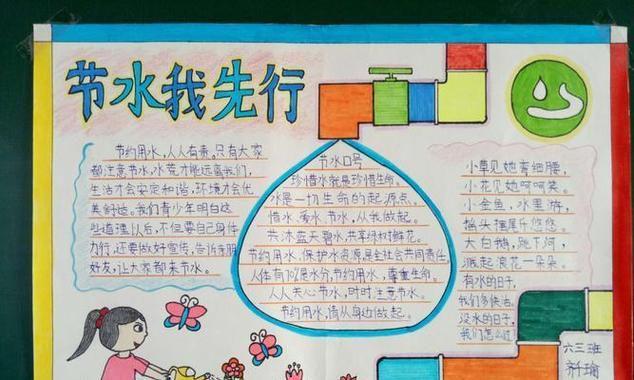 节水我先行
节约用水,人人有责。只有大家
都注意节水,水荒才能远离我们,
生活才会安定和谐,环境才会优
美舒适。我们青少年明白这
些道理以后,不但要自己身体
力行,还要做好宣传,告诉亲朋
好友,让大家都来节水。
节水口号
珍惜水就是珍惜生命。
水是一切生命的起源点。
惜水、秀水、节水,从我做起。
共沐蓝天碧水,共享绿树鲜花。
节约用水,保护水资源,是全社会共同责任。
人体有70%是水分,节约用水,尊重生命。
人人关心节水,时时注意节水。
节约用水,请从身边做起。
小草见她弯细腰,
小花见她呵呵笑。
小金鱼,水里游,
摇头摆尾乐悠悠。
大白鹅,跳下河,
溅起浪花一朵朵。
有水的日子,
我们多快活,
没水的日子,
我们怎么过
六三班